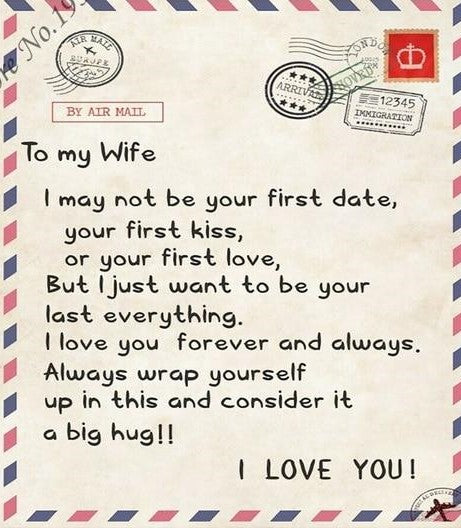 No.19
AIR MAIL
EUROPE
LONDON
ARRIVAL
12345
IMMIGRATION
BY AIR MAIL
To my Wife
I may not be your first date,
your first kiss,
or your first love,
But I just want to be your
last everything.
I love you forever and always.
Always wrap yourself
up in this and consider it
a big hug!!
I LOVE YOU!